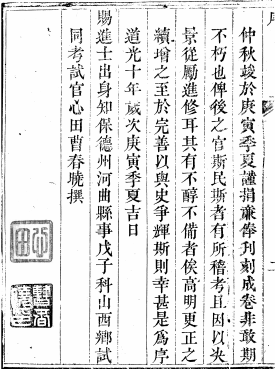 仲秋竣於庚寅季夏謹捐亷俸刋刻成卷非敢期
不朽也俾後之官斯民斯者有所稽考且因以决
景從勵進修耳其有不醇不備者俟高明更正之
續增之至於完善以與史爭輝斯則幸甚是為序
道光十年歲次庚寅季夏吉日
賜進士出身知保德州河曲縣事戊子科山西鄉試
同考試官心田曹春曉撰